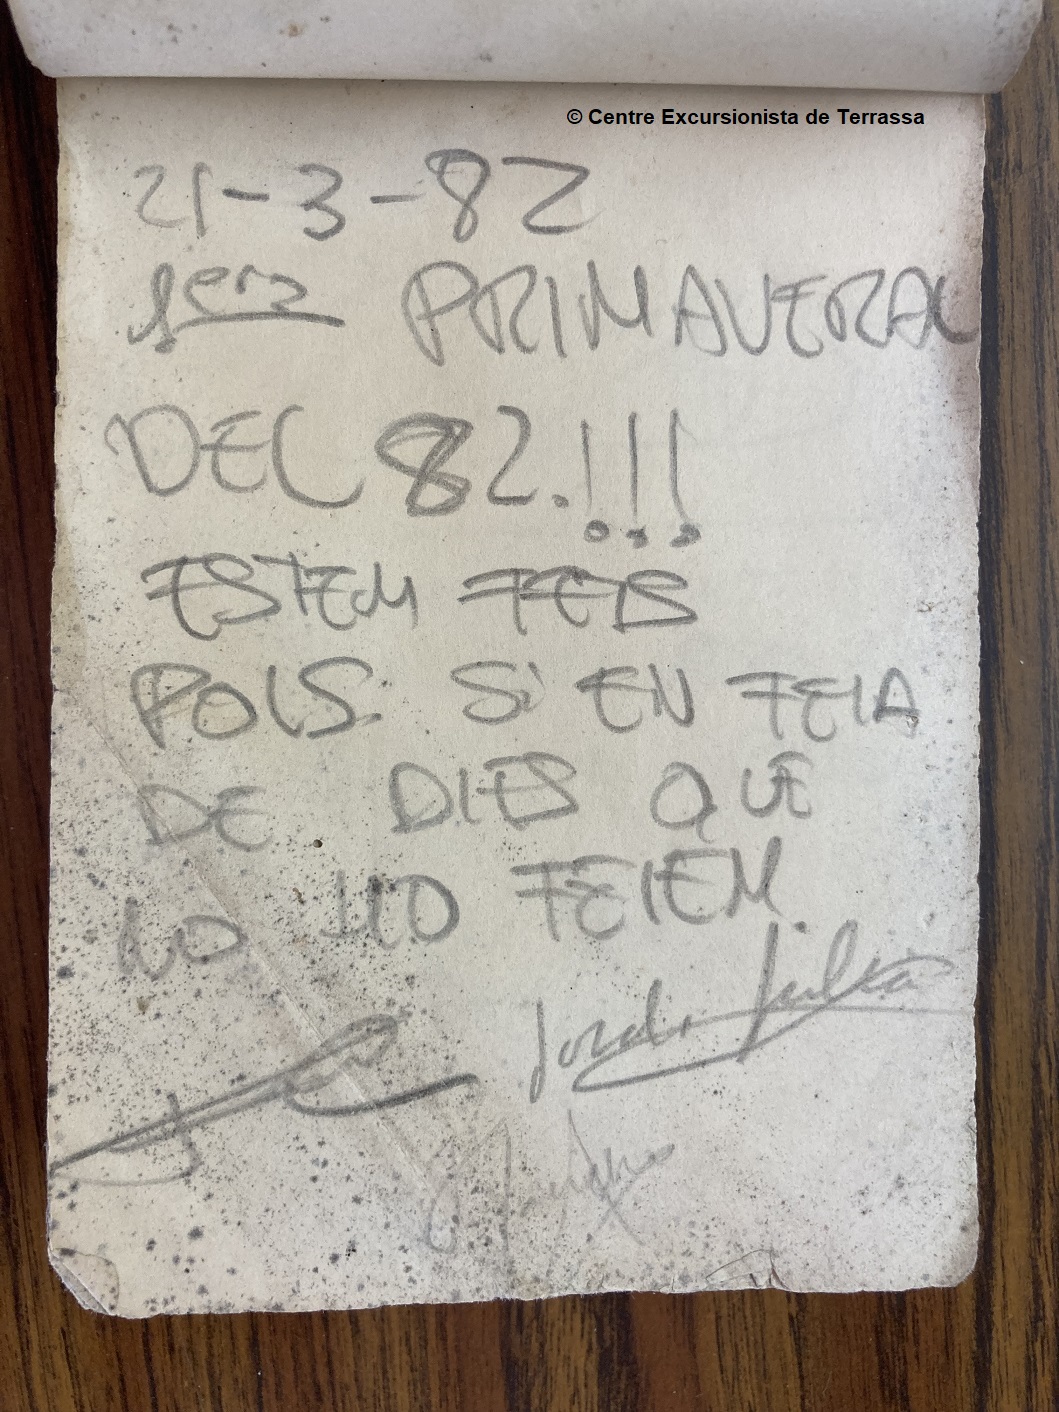 © Centre Excursionista de Terrassa
21-3-82
1era PRIMAVERAL
DEL 82.!!!
ESTEM FETS
POLS. SI EN FEIA
DE DIES QUE
NO HO FEIEM.
Jordi Julià